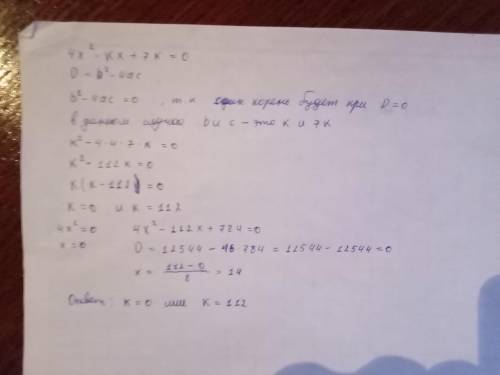 4x² - Kx + 7K = 0
D = b² - 4ac
b² - 4ac = 0 , т.к один корень будет при D = 0
в данном случае b и c - это K и 7K
K² - 4·4·7·K = 0
K² - 112K = 0
K(K - 112) = 0
K = 0 и K = 112
4x² = 0 4x² - 112x + 784 = 0
x = 0 D = 12544 - 16·784 = 12544 - 12544 = 0
x = (112 - 0)/8 = 14
Ответ: K = 0 или K = 112